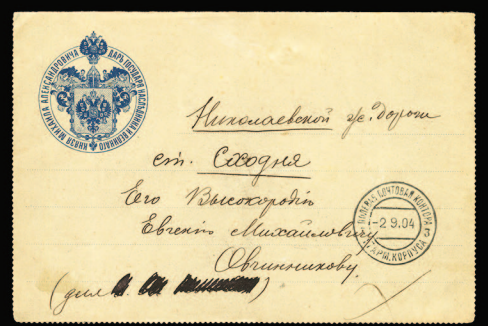 ДАРЪ ГОСУДАРЯ НАСЛѢДНИКА И ВЕЛИКАГО КНЯЗЯ МИХАИЛА АЛЕКСАНДРОВИЧА
Николаевской ж. дороги
ст. Сходня
Его Высокородiю
Евгенiю Михайловичу
Овчинникову
(для
)
ПОЧТОВАЯ КОНТОРА
-2.9.04
КОРПУСА